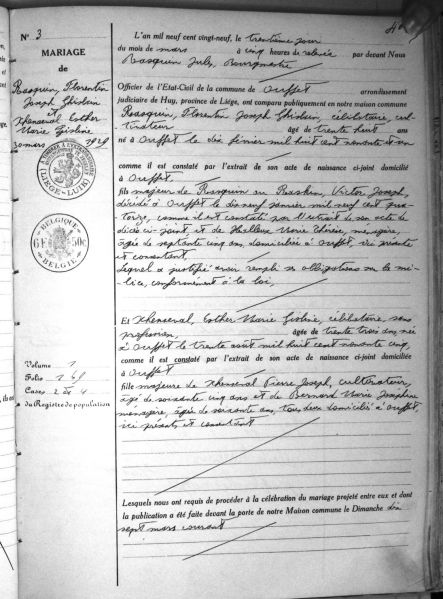 N° 3
MARIAGE
de
Rasquin, Florentin
Joseph Ghislain
et
Thenaerval Esther
Marie Gisline
30 mars 1929
BELGIQUE
6 F 50 c
BELGIE
Volume 1
Folio 168
Cases 2 et 4
du Registre de population
L'an mil neuf cent vingt-neuf, le trentième jour
du mois de mars à cinq heures de relevée par devant Nous
Rasquin Jules, Bourgmestre
Officier de l'Etat-Civil de la commune de Ouffet arrondissement
judiciaire de Huy, province de Liége, ont comparu publiquement en notre maison commune
Rasquin, Florentin Joseph Ghislain, célibataire, cul-
tivateur, âgé de trente huit ans
né à Ouffet le dix février mil huit cent nonante et un
comme il est constaté par l'extrait de son acte de naissance ci-joint domicilié
à Ouffet
fils majeur de Rasquin ou Raskin, Victor Joseph
décédé à Ouffet le dix neuf janvier mil neuf cent qua-
torze, comme il est constaté par l'extrait de son acte de
décès ci-joint et de Marie Thérèse, ménagère,
âgée de septante cinq ans, domiciliée à Ouffet, ici présente
et consentant
Lequel a justifié avoir rempli ses obligations sur la mi-
lice, conformément à la loi,
Et Esther Marie Gisline, célibataire, sans
profession, âgée de trente trois ans, née
à Ouffet le trente août mil huit cent nonante cinq,
comme il est constaté par l'extrait de son acte de naissance ci-joint domiciliée
à Ouffet
fille majeure de Pierre Joseph, cultivateur,
âgé de soixante cinq ans et de Bernard Marie Josephine
ménagère, âgée de soixante ans, tous deux domiciliés à Ouffet,
ici présents et consentant
Lesquels nous ont requis de procéder à la célébration du mariage projeté entre eux et dont
la publication a été faite devant la porte de notre Maison commune le Dimanche dix
sept mars courant